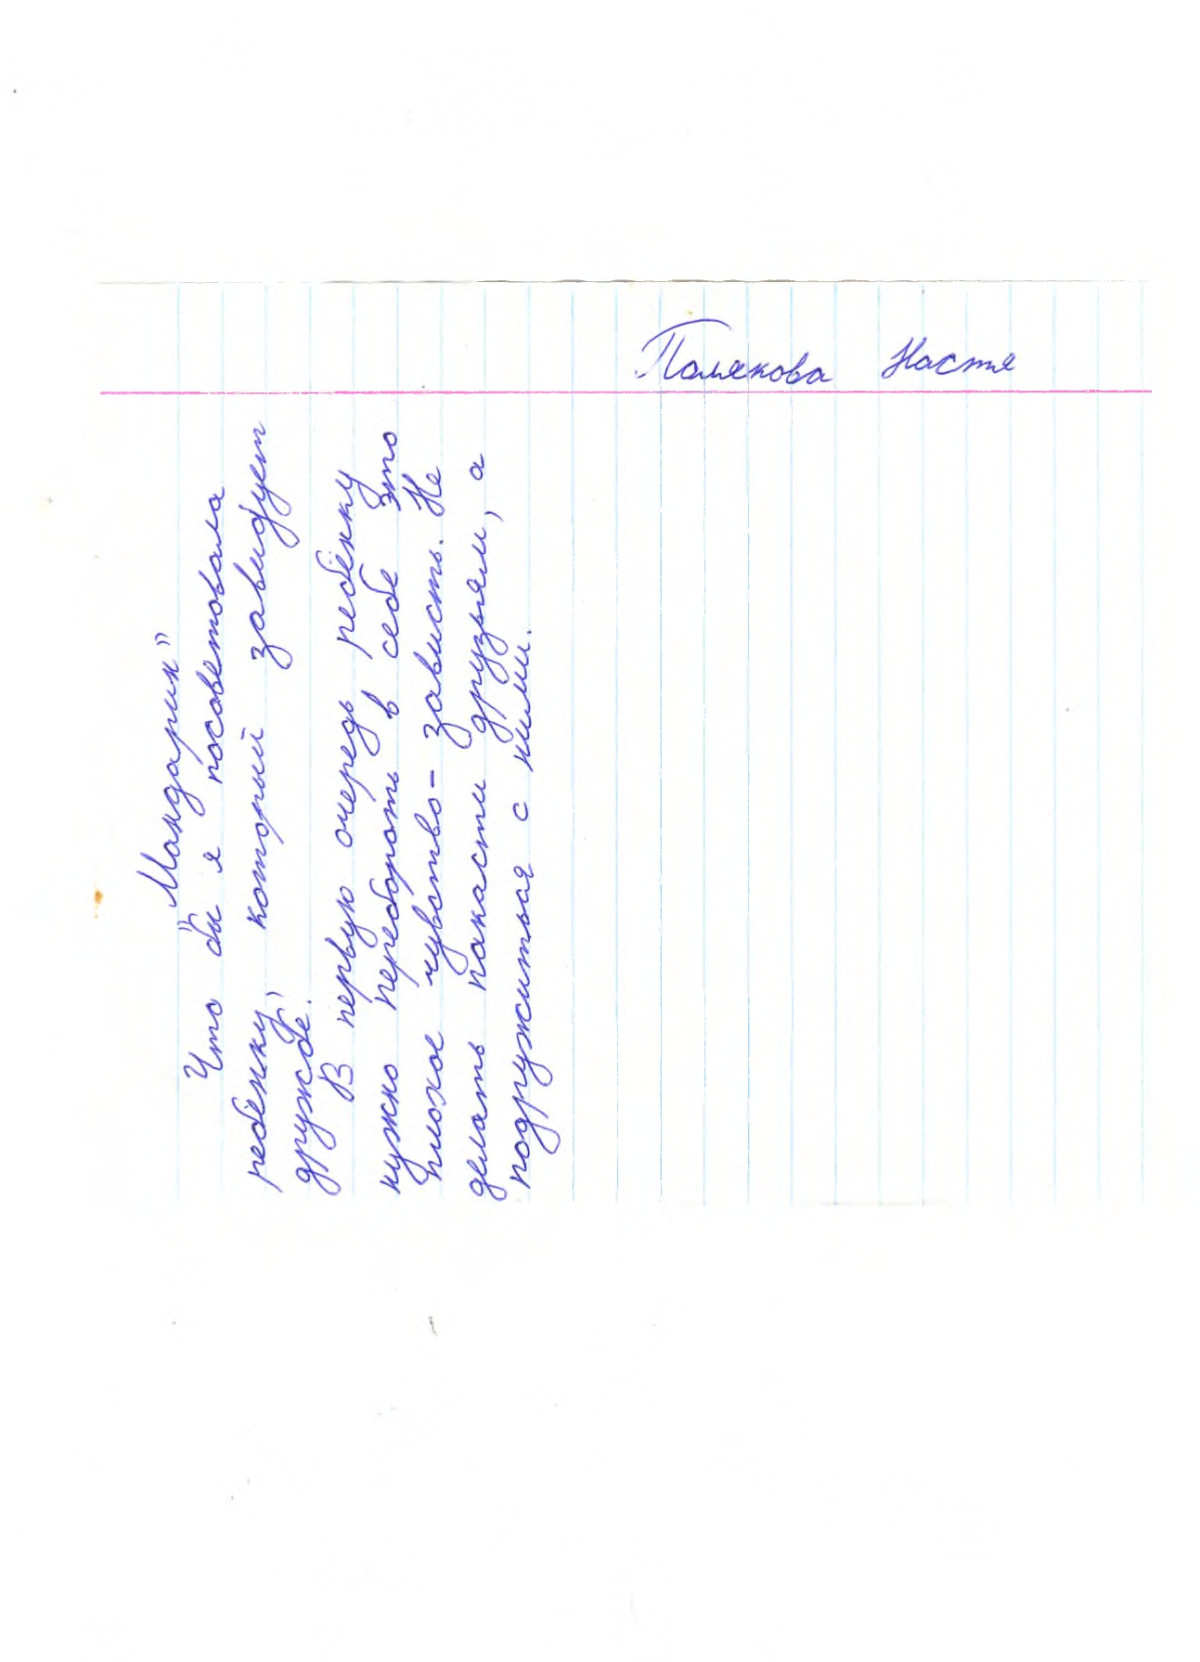 Полякова Настя
"Мандарин"
Что бы я посоветовала
ребёнку, который завидует
дружбе.
В первую очередь ребёнку
нужно перебороть в себе это
плохое чувство - зависть. Не
делать пакасти друзьям, а
подружиться с ними.